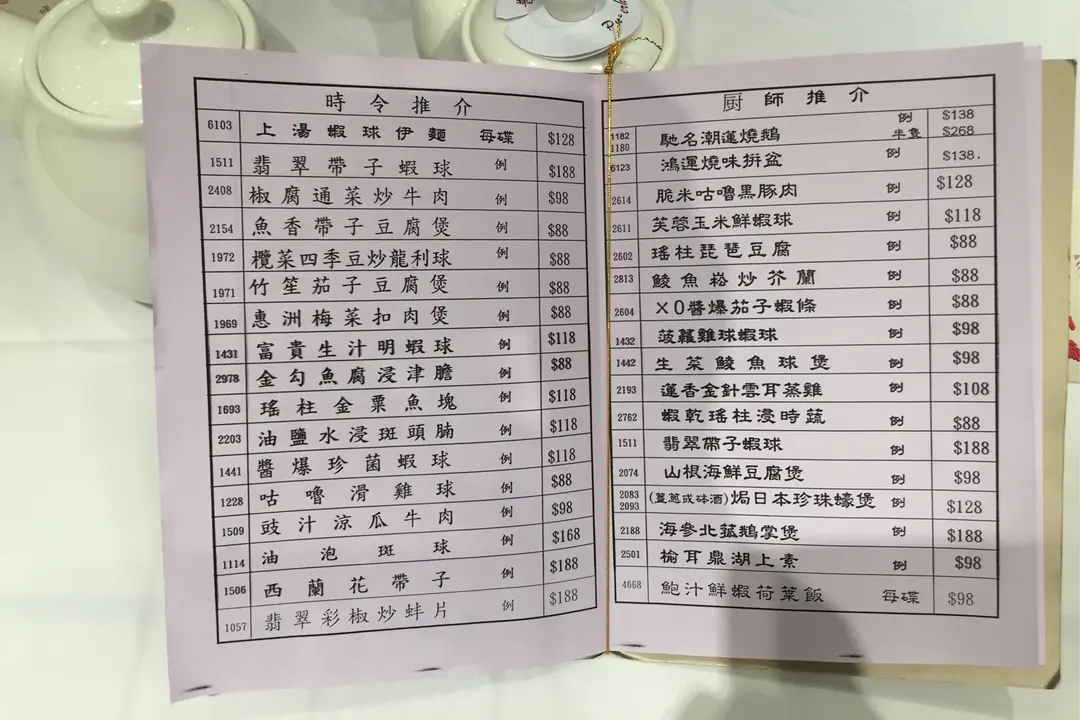 時令推介
6103 上湯蝦球伊麵 每碟 $128
1511 翡翠帶子蝦球 例 $188
2408 椒腐通菜炒牛肉 例 $98
2154 魚香帶子豆腐煲 例 $88
1972 欖菜四季豆炒龍利球 例 $88
1971 竹笙茄子豆腐煲 例 $88
1969 惠洲梅菜扣肉煲 例 $88
1431 富貴生汁明蝦球 例 $118
2978 金勾魚腐浸津膽 例 $88
1693 瑤柱金粟魚塊 例 $118
2203 油鹽水浸斑頭腩 例 $118
1441 醬爆珍菌蝦球 例 $118
1228 咕嚕滑雞球 例 $88
1509 豉汁涼瓜牛肉 例 $98
1114 油泡斑球 例 $168
1506 西蘭花帶子 例 $188
1057 翡翠彩椒炒蚌片 例 $188
厨師推介
1182 1180 馳名潮蓮燒鵝 例 $138 半隻 $268
6123 鴻運燒味拼盆 例 $138.
2614 脆米咕嚕黑豚肉 例 $128
2611 芙蓉玉米鮮蝦球 例 $118
2602 瑤柱琵琶豆腐 例 $88
2813 鯪魚崧炒芥蘭 例 $88
2604 XO醬爆茄子蝦條 例 $88
1432 菠蘿雞球蝦球 例 $98
1442 生菜鯪魚球煲 例 $98
2193 蓮香金針雲耳蒸雞 例 $108
2762 蝦乾瑤柱浸時蔬 例 $88
1511 翡翠帶子蝦球 例 $188
2074 山根海鮮豆腐煲 例 $98
2083 2093 (薑蔥或砵酒)焗日本珍珠蠔煲 例 $128
2188 海參北菰鵝掌煲 例 $188
2501 榆耳鼎湖上素 例 $98
4668 鮑汁鮮蝦荷葉飯 每碟 $98